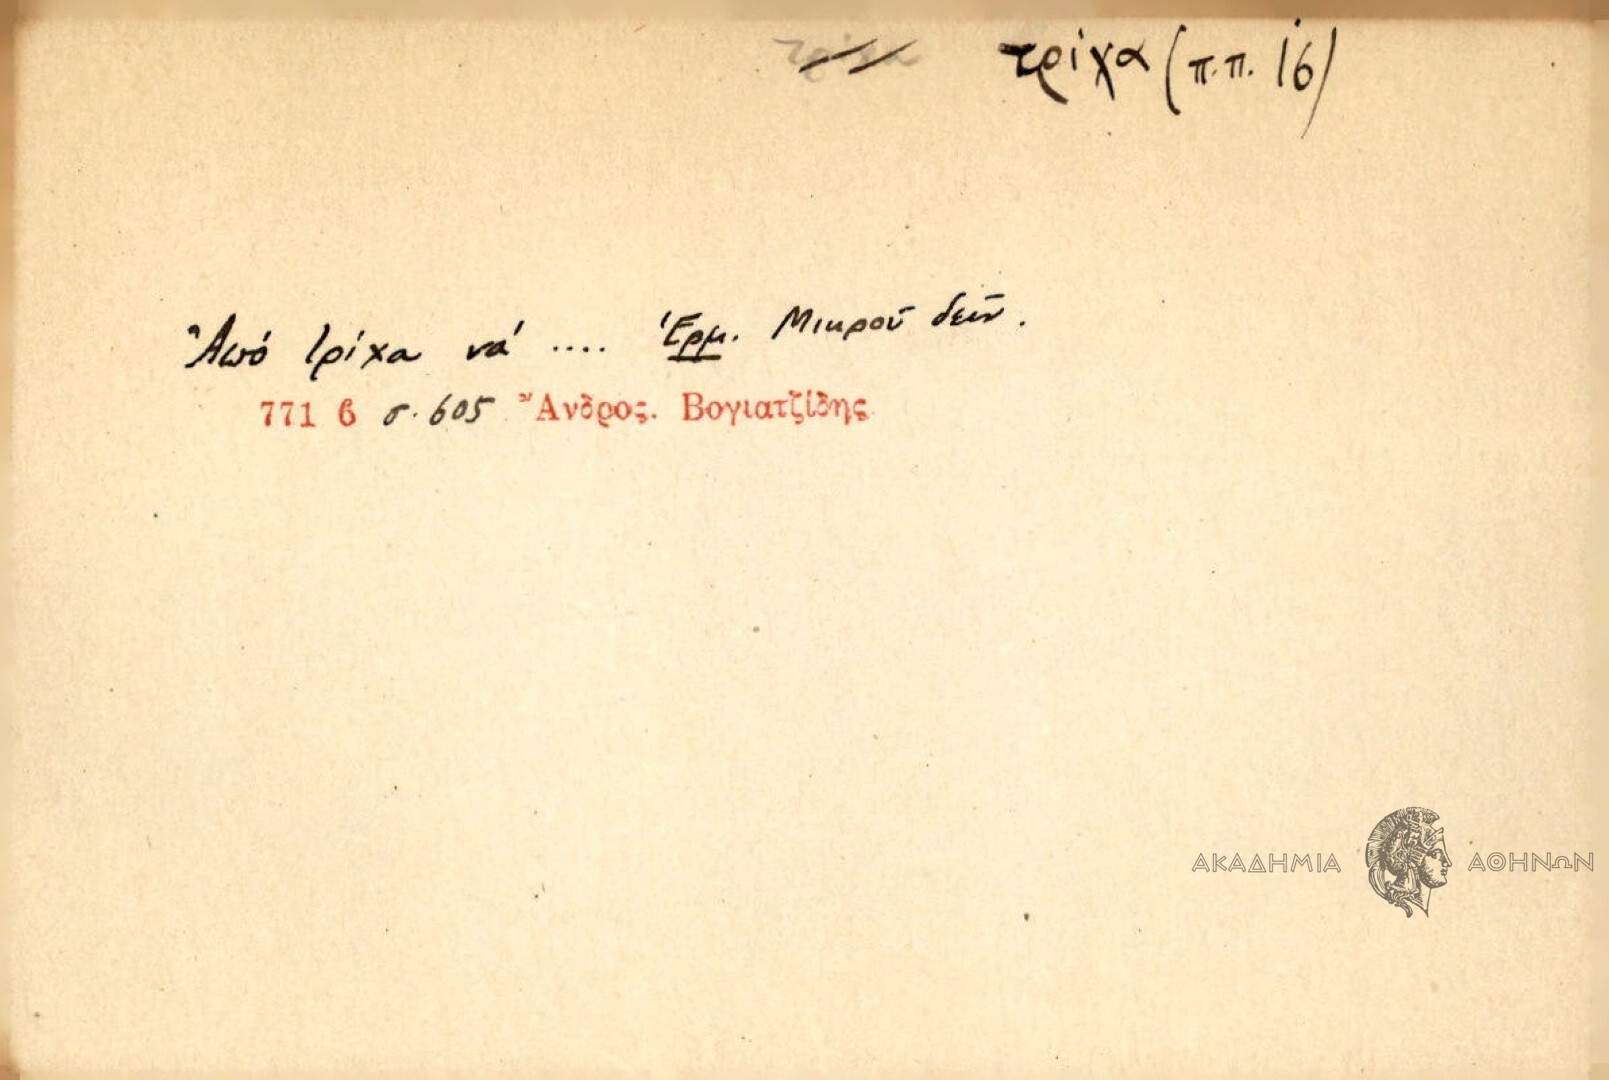 τρίχα τρίχα (π.π. 16)
Ἀπό τρίχα νά .... Ἑρμ. Μικροῦ δεῖν.
771 β σ. 605 Ἄνδρος. Βογιατζίδης
ΑΚΑΔΗΜΙΑ ΑΘΗΝΩΝ